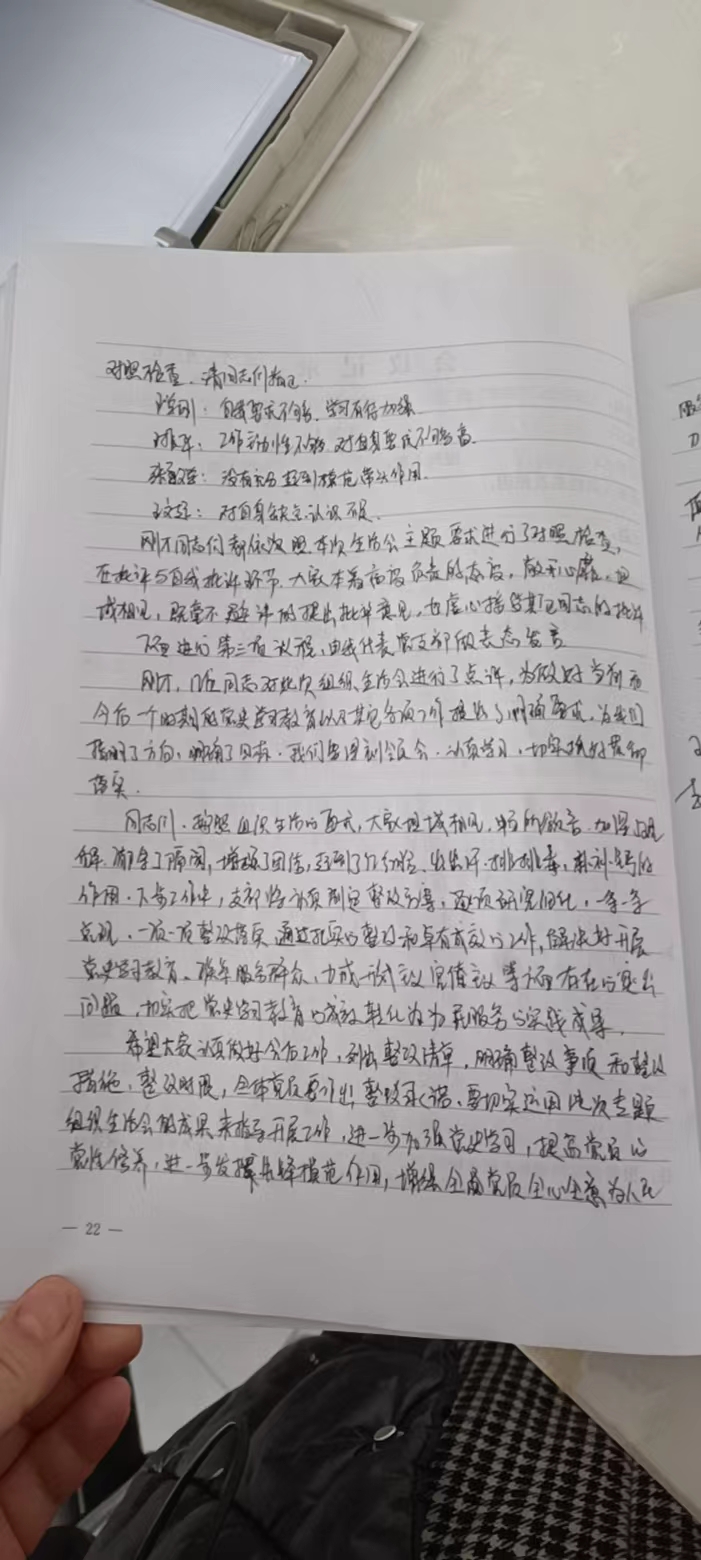 对照检查，请同志们指正。
自我要求不够，学习有待加强
工作主动性不够 对自身要求不够高
没有充分起到模范带头作用.
对自身缺点认识不足.
刚才同志们都依次照本次生活会主题要求进行了对照检查，
在批评与自我批评环节，大家本着高度负责的态度，敞开心扉，坦
诚相见，既毫不避讳的提出批评意见，也虚心接受其他同志的批评
下面进行第三项议程，由我代表党支部做表态发言
刚才，几位同志对此次组织生活会进行了点评，为做好当前和
今后一个时期的党史学习教育以及其它各项工作提出了明确要求，为我们
指明了方向，明确了目标。我们要深刻领会、认真学习，切实抓好贯彻
落实.
同志们，按照组织生活的要求，大家坦诚相见，畅所欲言，加深了理
解，消除了隔阂，增强了团结，起到了红红脸、出出汗、排排毒、补补钙的
作用。下步工作中，支部将认真制定整改方案，逐项研究细化，一条一条
兑现，一项一项整改落实，通过扎实的整改和卓有成效的工作，解决好开展
党史学习教育、服务群众、力戒形式主义官僚主义等方面存在的突出
问题，切实把党史学习教育的成效转化为为民服务的实践成果。
希望大家认真做好今后工作，列出整改清单，明确整改事项和整改
措施，整改时限，全体党员要作出整改承诺。要切实运用此次专题
组织生活会的成果来指导开展工作，进一步加强党史学习，提高党员的
党性修养，进一步发挥先锋模范作用，增强全体党员全心全意为人民
— 22 —